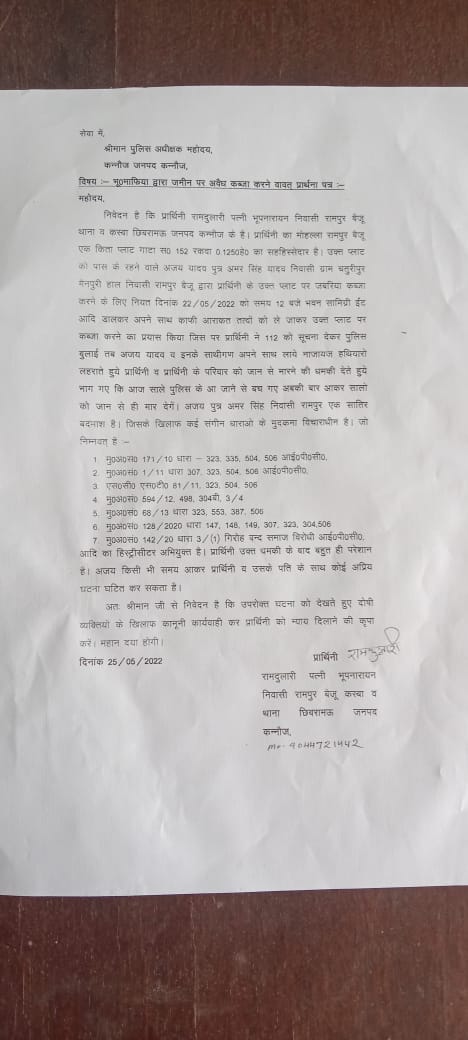 सेवा में,
श्रीमान पुलिस अधीक्षक महोदय,
कन्नौज जनपद कन्नौज,
विषय :– भू0माफिया द्वारा जमीन पर अवैध कब्जा करने वावत् प्रार्थना पत्र :–
महोदय,
निवेदन है कि प्रार्थिनी रामदुलारी पत्नी भूपनारायन निवासी रामपुर बैजू
थाना व कस्वा छिबरामऊ जनपद कन्नौज के है। प्रार्थिनी का मोहल्ला रामपुर बैजू
एक किता प्लाट गाटा स0 152 रकवा 0.1250हे0 का सहहिस्सेदार है। उक्त प्लाट
को पास के रहने वाले अजय यादव पुत्र अमर सिंह यादव निवासी ग्राम चतुरीपुर
मैनपुरी हाल निवासी रामपुर बैजू द्वारा प्रार्थिनी के उक्त प्लाट पर जबरिया कब्जा
करने के लिए नियत दिनांक 22/05/2022 को समय 12 बजे भवन सामिग्री ईंट
आदि डालकर अपने साथ काफी आराकत तत्वों को ले जाकर उक्त प्लाट पर
कब्जा करने का प्रयास किया जिस पर प्रार्थिनी ने 112 को सूचना देकर पुलिस
बुलाई तब अजय यादव व इनके साथीगण अपने साथ लाये नाजायज हथियारो
लहराते हुये प्रार्थिनी व प्रार्थिनी के परिवार को जान से मारने की धमकी देते हुये
भाग गए कि आज साले पुलिस के आ जाने से बच गए अबकी बार आकर सालो
को जान से ही मार देगें। अजय पुत्र अमर सिंह निवासी रामपुर एक सातिर
बदमाश है। जिसके खिलाफ कई संगीन धाराओ के मुदकमा विचाराधीन है। जो
निम्नवत् है :–
1. मु0अ0सं0 171/10 धारा – 323, 335, 504, 506 आई0पी0सी0,
2. मु0अ0सं0 1/11 धारा 307, 323, 504, 506 आई0पी0सी0,
3. एस0सी0 एस0टी0 81/11, 323, 504, 506
4. मु0अ0सं0 594/12, 498, 304बी, 3/4
5. मु0अ0सं0 68/13 धारा 323, 553, 387, 506
6. मु0अ0सं0 128/2020 धारा 147, 148, 149, 307, 323, 304,506
7. मु0अ0सं0 142/20 धारा 3/(1) गिरोह बन्द समाज विरोधी आई0पी0सी0,
आदि का हिस्ट्रीसीटर अभियुक्त है। प्रार्थिनी उक्त धमकी के बाद बहुत ही परेशान
है। अजय किसी भी समय आकर प्रार्थिनी व उसके पति के साथ कोई अप्रिय
घटना घटित कर सकता है।
अतः श्रीमान जी से निवेदन है कि उपरोक्त घटना को देखते हुए दोषी
व्यक्तियो के खिलाफ कानूनी कार्यवाही कर प्रार्थिनी को न्याय दिलाने की कृपा
करें। महान दया होगी।
दिनांक 25/05/2022
प्रार्थिनी रामदुलारी
रामदुलारी पत्नी भूपनारायन
निवासी रामपुर बेजू कस्बा व
थाना छिबरामऊ जनपद
कन्नौज,